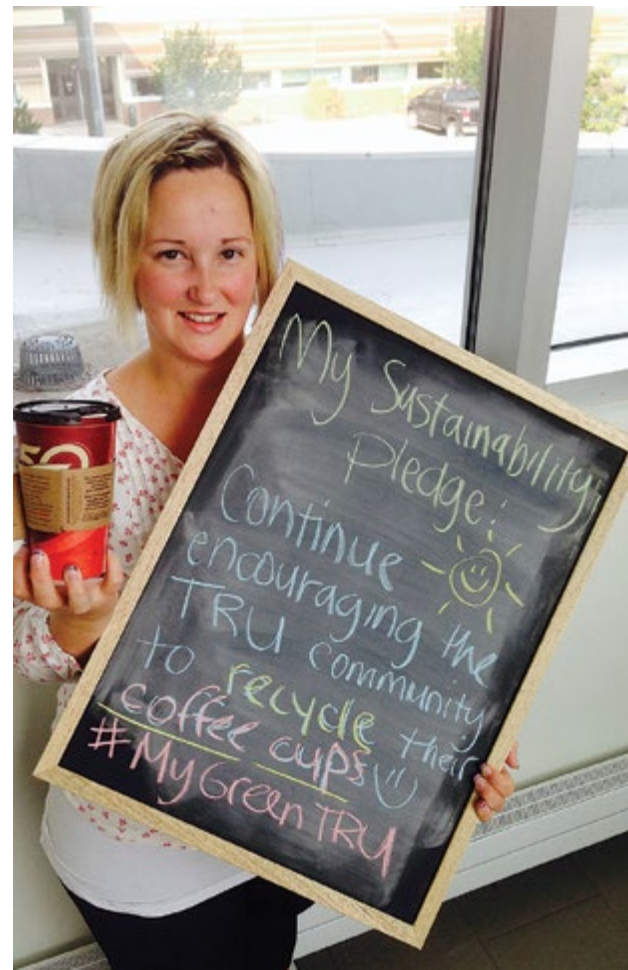 My Sustainability
Pledge:
Continue
encouraging the
TRU community
to recycle their
coffee cups
#MyGreenTRU